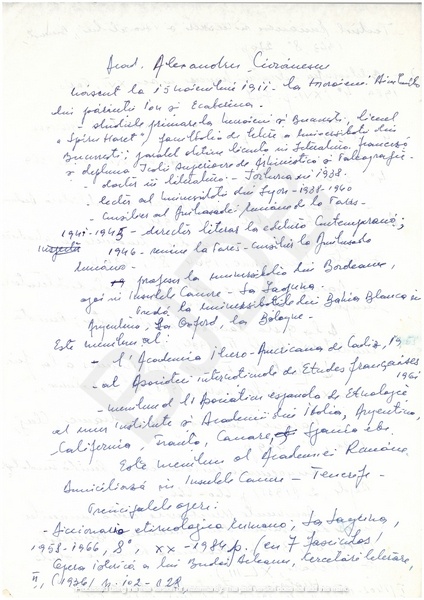 Acad. Alexandru Ciorănescu
născut la 15 noiembrie 1911 - la Moroieni Dîmbovița
din părinții Ion și Ecaterina -
- studiile primare la Moroieni și București, liceul
"Spiru Haret", facultatea de litere a Universității din
București; paralel obține licența în literatura franceză
și diploma Școlii Superioare de Arhivistică și Paleografie -
doctor în literatură - Sorbona în 1938.
- lector al Universității din Lyon - 1938-1940
- Consilier al Ambasadei române la Paris -
1941-1945 - director literar la editura Contemporană;
1946 - revine la Paris - consilier la Ambasada
română -
- profesor la universitatea din Bordeaux,
apoi în Insulele Canare - La Laguna.
Predă la universitățile din Bahia Blanca în
Argentina, la Oxford, la Bologne -
Este membru al:
- l'Academia Ibero-Americana de Cadiz, 19
- al Asociației internationale de Etudes françaises
1961
- membru al l'Asociatión española de Etnologia
al unor institute și Academii din Italia, Argentina,
California, Franța, Canare, Spania etc.
Este membru al Academiei Române
Domiciliază în Insulele Canare - Tenerife -
Principalele opere:
- Diccionario etimológico rumano, La Laguna,
1958-1966, 8°, XX - 1984 p. (en 7 fasciculos)
Opera istorică a lui Budai Deleanu, cercetări literare,
II, (1936) p. 102-128